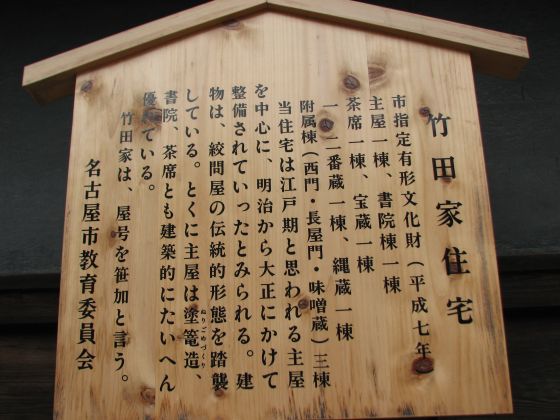 竹田家住宅
市指定有形文化財(平成七年)
主屋一棟、書院棟一棟
茶席一棟、宝蔵一棟
一、二番蔵一棟、縄蔵一棟
附属棟(西門・長屋門・味噌蔵)三棟
当住宅は江戸期と思われる主屋
を中心に、明治から大正にかけて
整備されていったとみられる。建
物は、絞問屋の伝統的形態を踏襲
している。とくに主屋は塗篭造、
ぬりごめづくり
書院、茶席とも建築的にたいへん
優れている。
竹田家は、屋号を笹加と言う。
名古屋市教育委員会